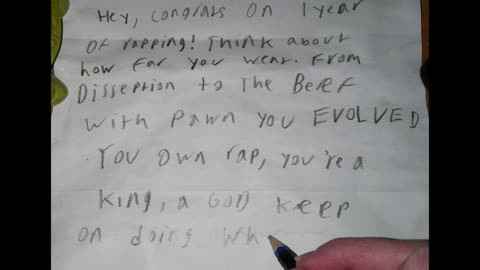 Hey, congrats on 1 year
of rapping! Think about
how far you went. From
Disseption to The Beref
with Pawn you EVOLVED
You own rap, you're a
king, a GOD keep
on doing wh